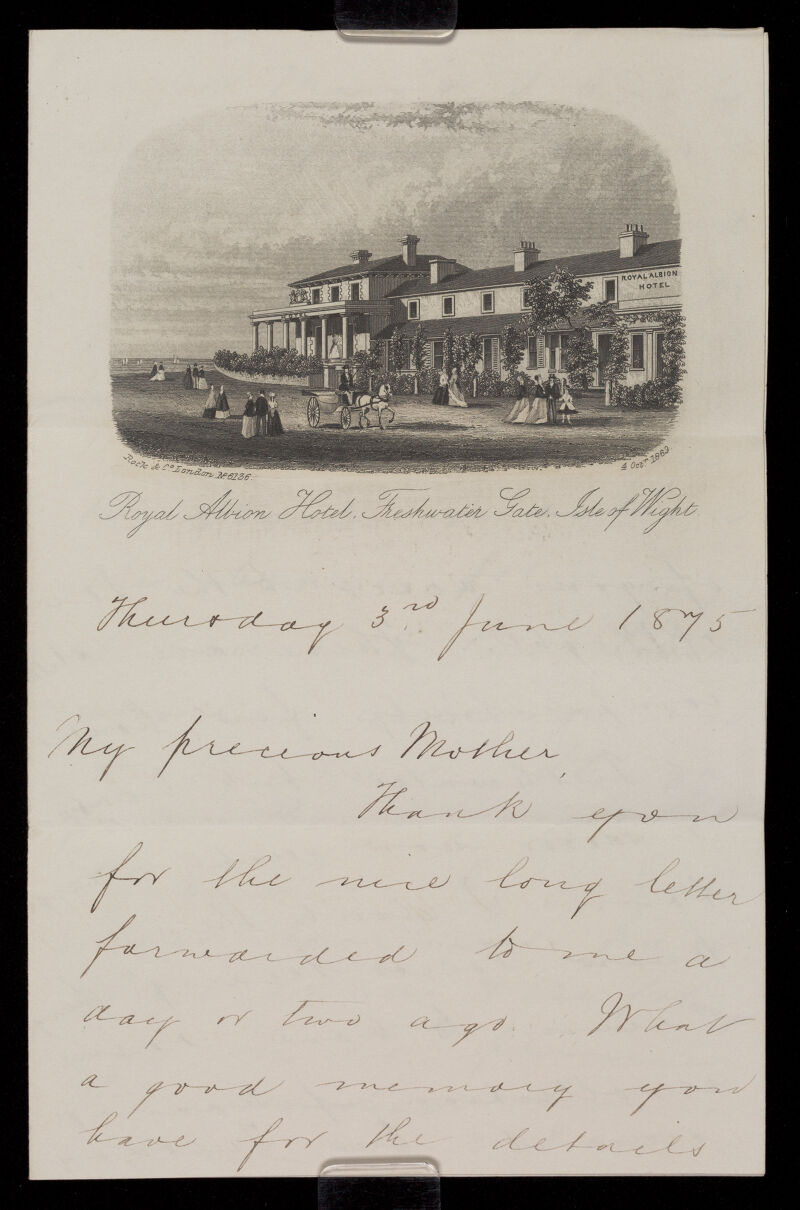 ROYAL ALBION
HOTEL
Rock & Co. London No. 6136.
4 Octr. 1863
Royal Albion Hotel, Freshwater Gate, Isle of Wight.
Thursday 3rd. June 1875
My precious Mother,
Thank you
for the nice long letter
forwarded to me a
day or two ago. What
a good memory you
have for the details